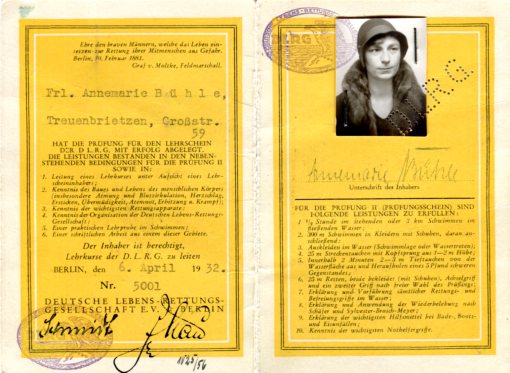 Ehre den braven Männern, welche das Leben ein-
setzen zur Rettung ihrer Mitmenschen aus Gefahr.
Berlin, 10. Februar 1881.
Graf v. Moltke, Feldmarschall.
Frl. Annemarie Bühle,
Treuenbrietzen, Großstr.
59
HAT DIE PRÜFUNG FÜR DEN LEHRSCHEIN
DER D L.R.G. MIT ERFOLG ABGELEGT.
DIE LEISTUNGEN BESTANDEN IN DEN NEBEN-
STEHENDEN BEDINGUNGEN FÜR DIE PRÜFUNG II
SOWIE IN:
1. Leitung eines Lehrkurses unter Aufsicht eines Lehr-
scheininhabers;
2. Kenntnis des Baues und Lebens des menschlichen Körpers
(insbesondere Atmung und Blutzirkulation, Herzschlag,
Ersticken, Übermüdigkeit, Atemnot, Erhitzung u. Krampf);
3. Kenntnis der wichtigsten Rettungsapparate;
4. Kenntnis der Organisation der Deutschen Lebens-Rettungs-
Gesellschaft;
5. Einer praktischen Lehrprobe im Schwimmen;
6. Einer schriftlichen Arbeit aus einem dieser Gebiete.
Der Inhaber ist berechtigt,
Lehrkurse der D.L.R.G. zu leiten
BERLIN, den 6. April 1932.
Nr. 5001
DEUTSCHE LEBENS-RETTUNGS-
GESELLSCHAFT E.V. BERLIN
DLRG
D.L.R.G.
Annemarie Bühle
Unterschrift des Inhabers
FÜR DIE PRÜFUNG II (PRÜFUNGSSCHEIN) SIND
FOLGENDE LEISTUNGEN ZU ERFÜLLEN:
1. ½ Stunde im stehenden oder 2 km Schwimmen im
fließenden Wasser;
2. 300 m Schwimmen in Kleidern mit Schuhen, daran an-
schließend:
3. Auskleiden im Wasser (Schwimmlage oder Wassertreten);
4. 25 m Streckentauchen mit Kopfsprung aus 1—2 m Höhe;
5. Innerhalb 2 Minuten 2—3 m Tieftauchen von der
Wasserfläche aus und Heraufholen eines 5 Pfund schweren
Gegenstandes;
6. 25 m Retten, beide bekleidet (mit Schuhen), Achselgriff
und ein zweiter Griff nach freier Wahl des Prüflings;
7. Erklärung und Vorführung sämtlicher Rettungs- und
Befreiungsgriffe im Wasser;
8. Erklärung und Anwendung der Wiederbelebung nach
Schäfer und Sylvester-Brosch-Meyer;
9. Erklärung der wichtigsten Hilfsmittel bei Bade-, Boots-
und Eisunfällen;
10. Kenntnis der wichtigsten Nothelfergriffe.